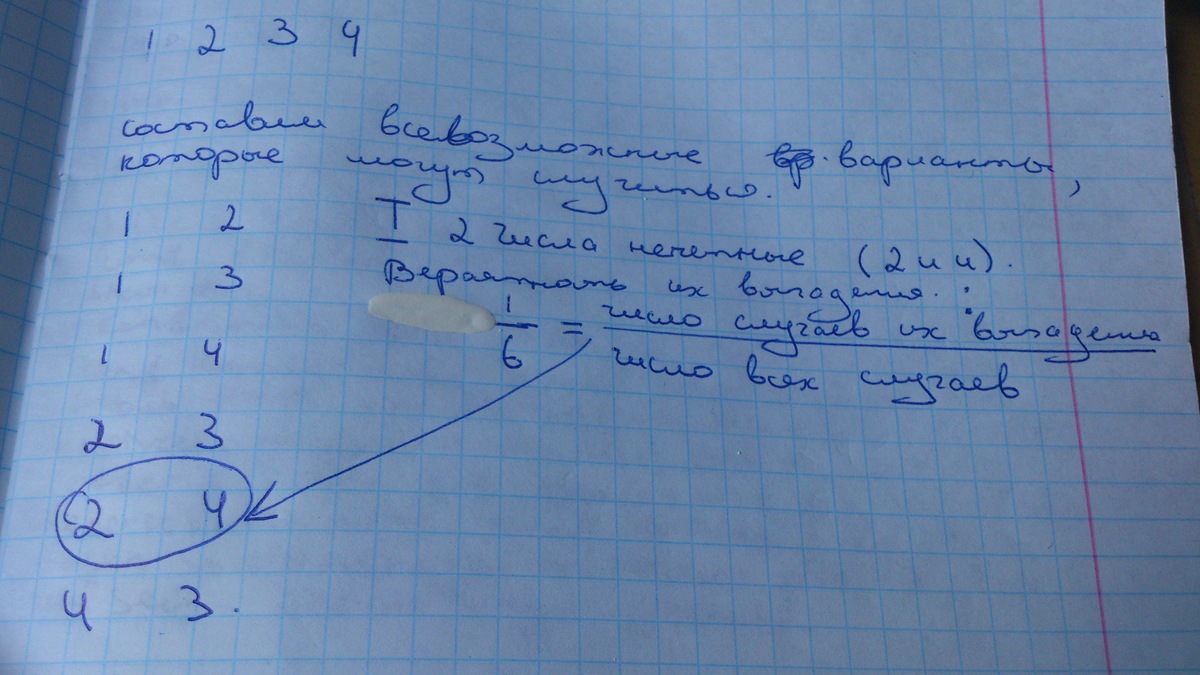 1 2 3 4
составим всевозможные вр. варианты,
которые могут случиться.
1 2
I 2 числа нечетные (2 и 4).
1 3
Вероятность их выпадения:
1/6 = число случаев их выпадения / число всех случаев
1 4
2 3
2 4
4 3.